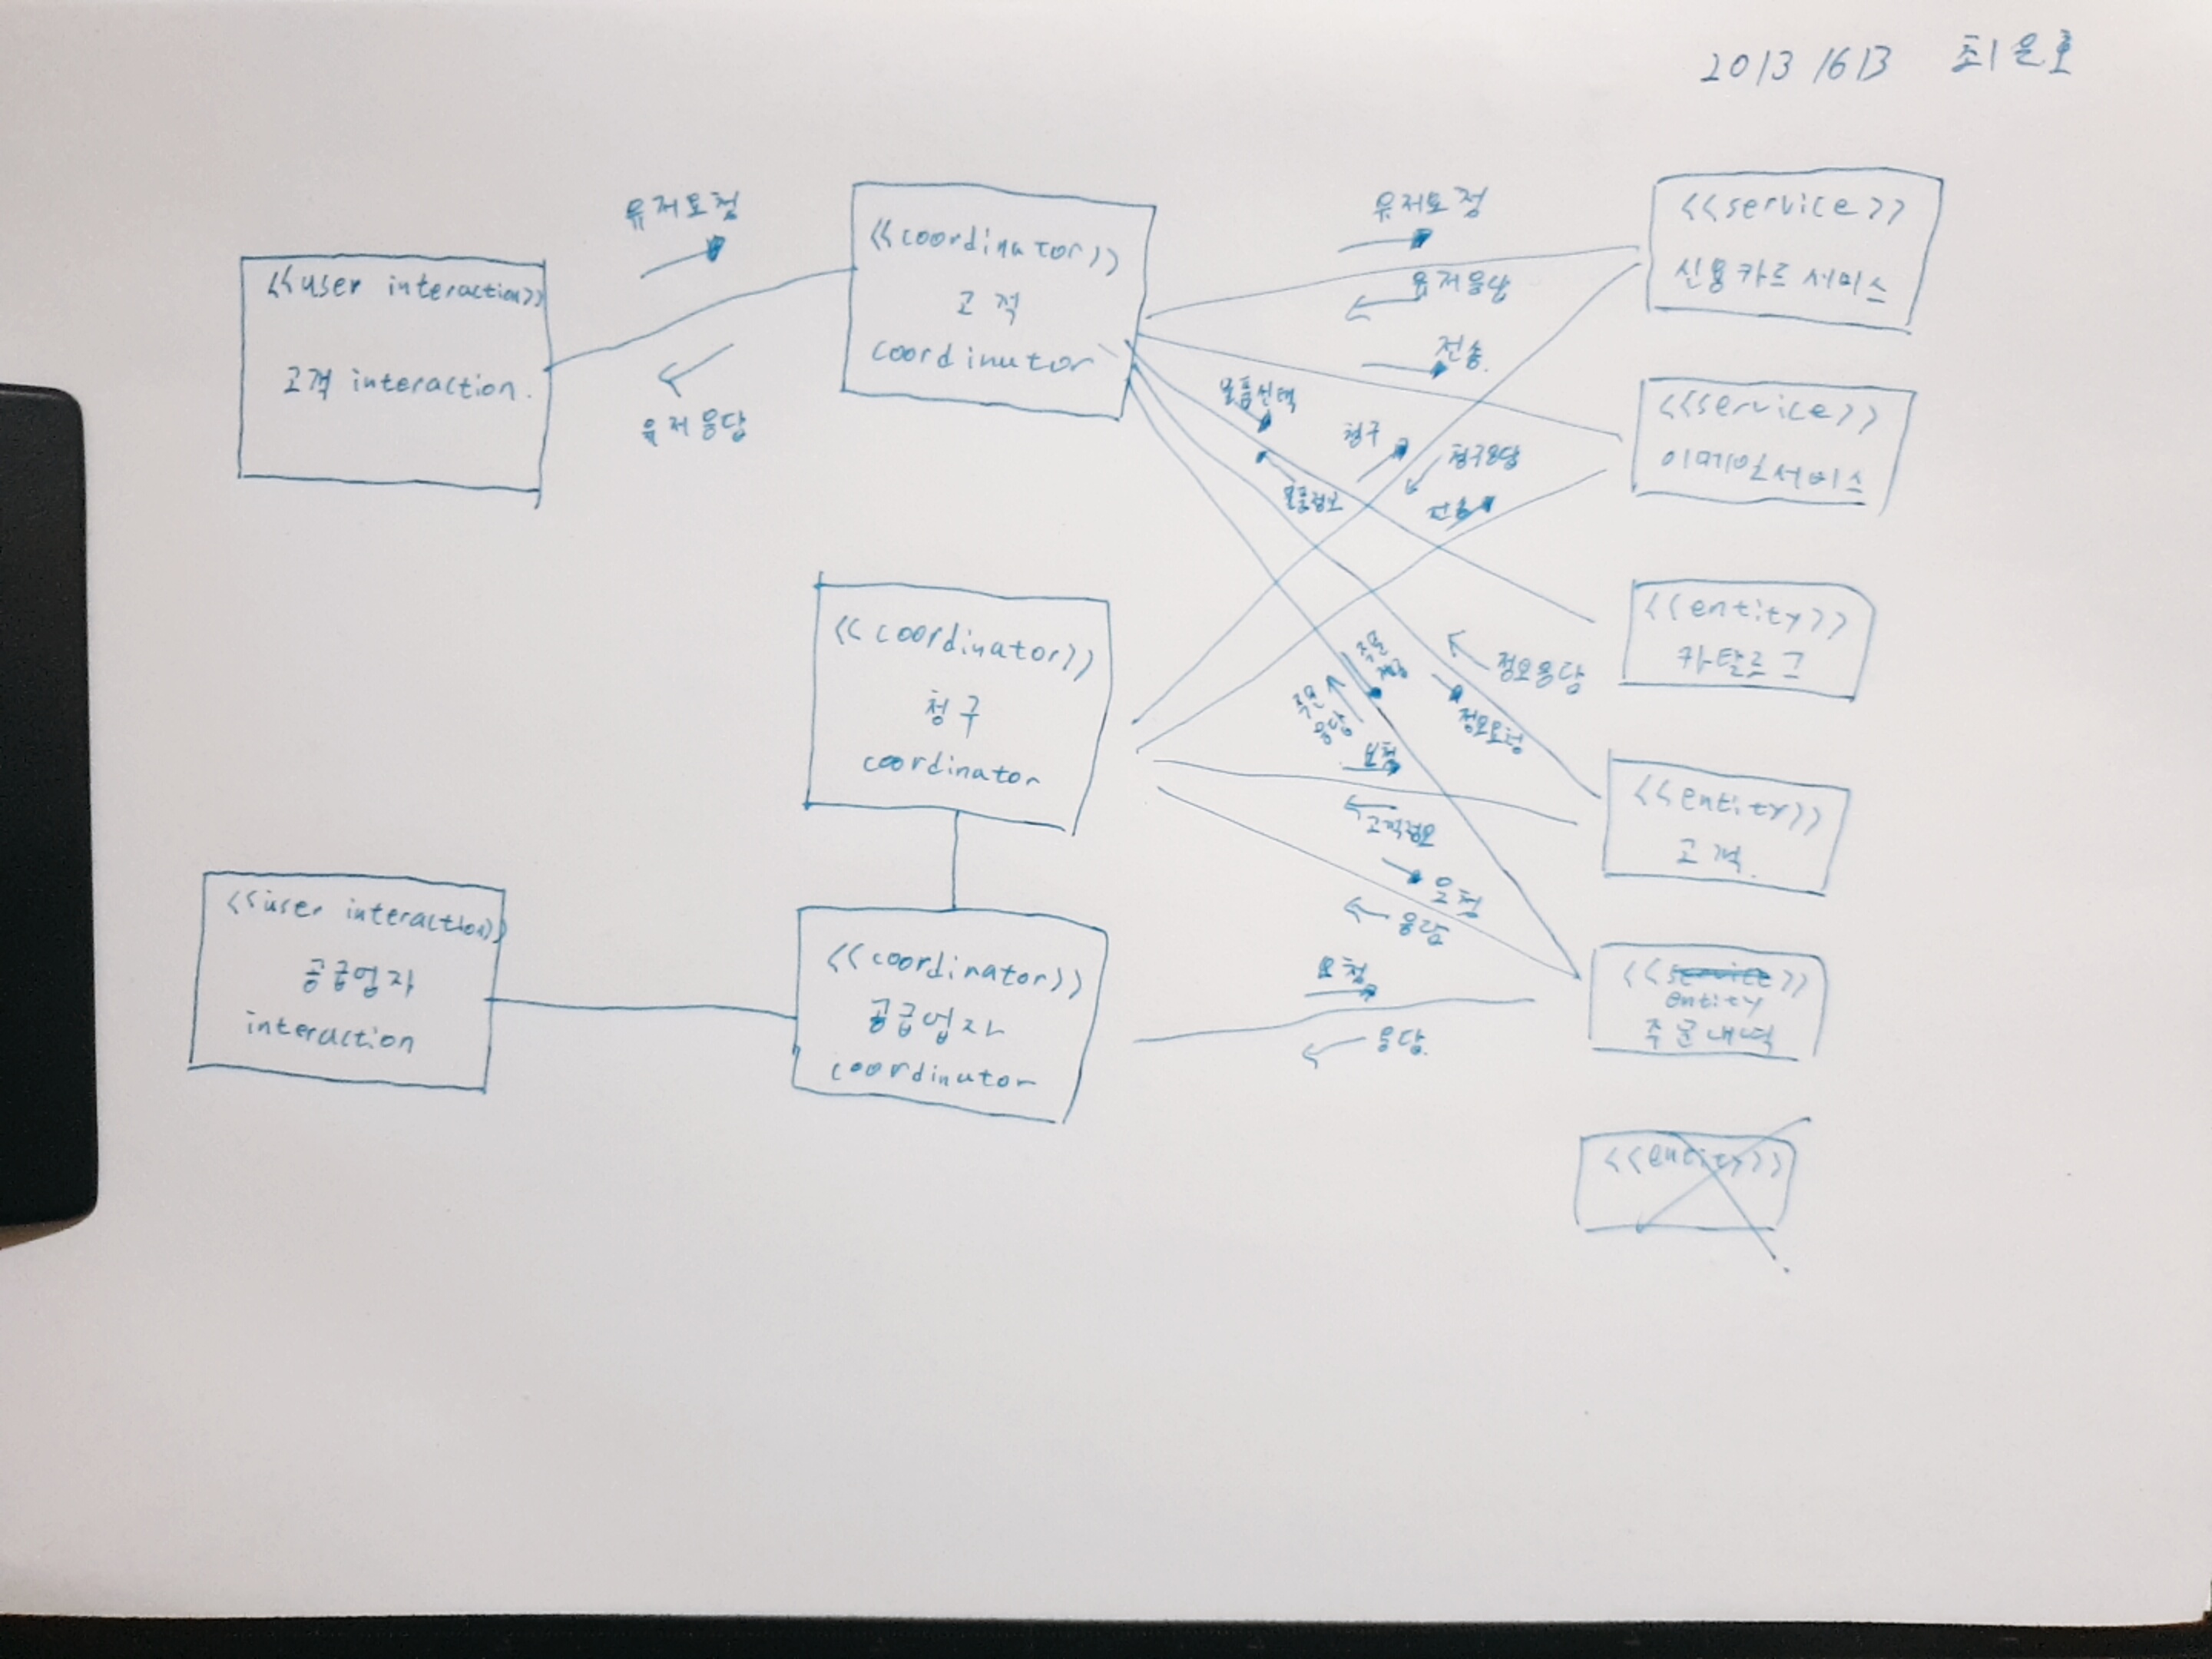 20131613 최윤호
<<user interaction>>
고객 interaction.
유저요청
유저응답
<<coordinator>>
고객
coordinator
유저요청
유저응답
전송.
물품선택
물품정보
청구
청구응답
전송
<<service>>
신용카드 서비스
<<service>>
이메일 서비스
<<entity>>
카탈로그
<<coordinator>>
청구
coordinator
주문
주문
응답
정보응답
정보요청
요청
고객정보
요청
응답
<<entity>>
고객.
<<user interaction>>
공급업자
interaction
<<coordinator>>
공급업자
coordinator
요청
응답.
<<service>>
entity
주문내역
<<entity>>